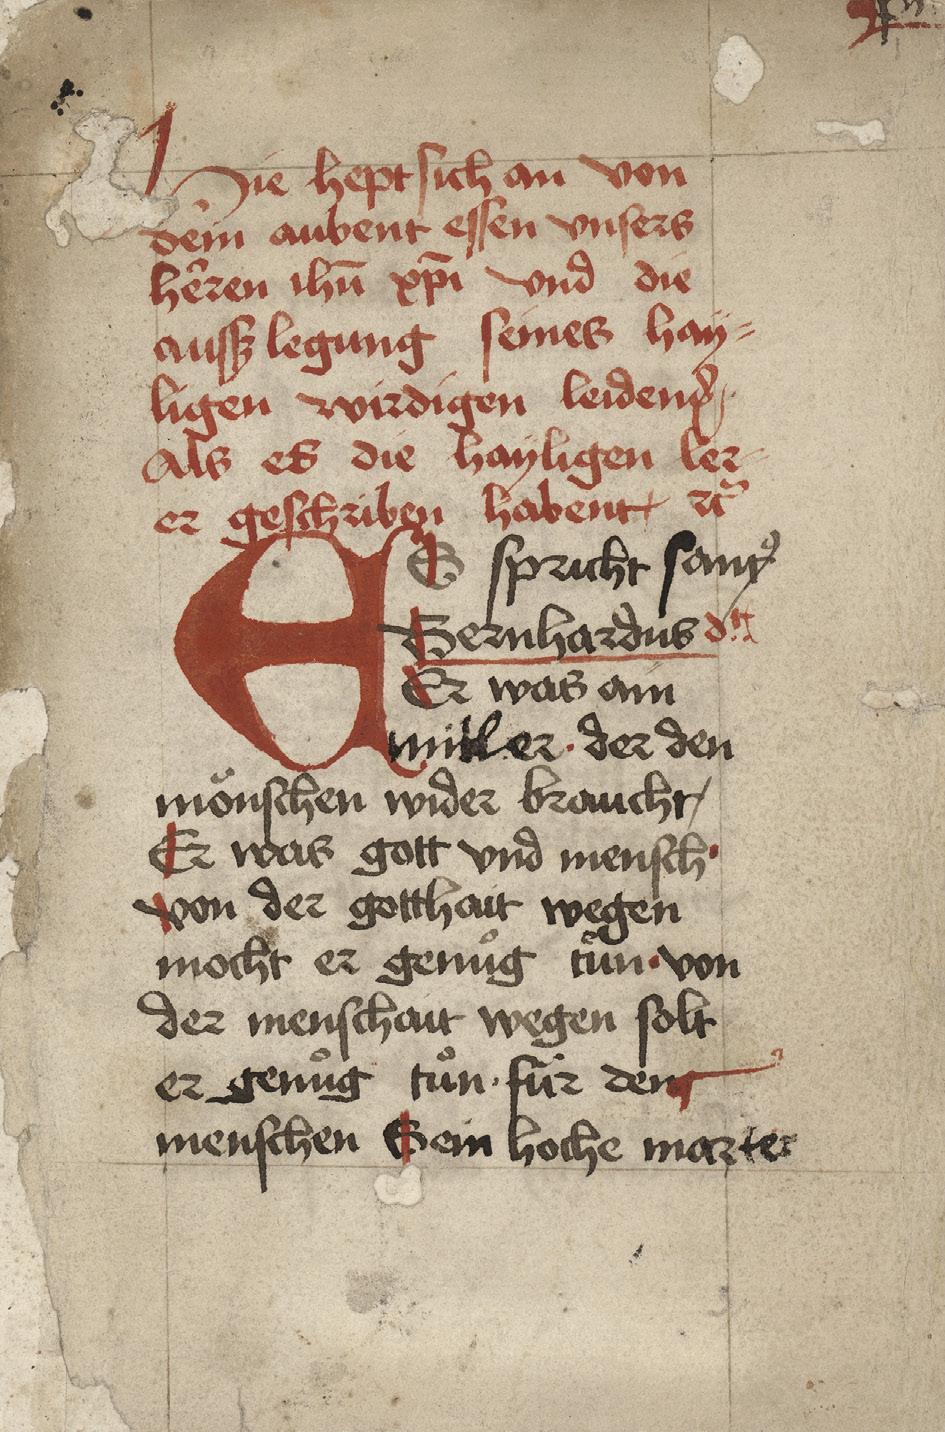 Hie hept sich an von
dem aubent essen vnsers
herren ihu̅ xp̅i vnd die
aussz legung seines hay⸗
ligen wirdigen leidens
Als es die hayligen ler⸗
er geschriben habent
ES spricht sant
Bernhardus
Er was ain
mitler · der den
mönschen wider braucht /
Er was gott vnd mensch ·
von der gotthait wegen
mocht er genuͦg tuͦn · von
der menschait wegen solt
er genuͦg tuͦn · für den
menschen Sein hoche marter